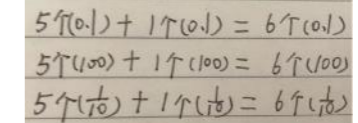 5个(0.1) + 1个(0.1) = 6个(0.1)
5个(100) + 1个(100) = 6个(100)
5个(1/10) + 1个(1/10) = 6个(1/10)